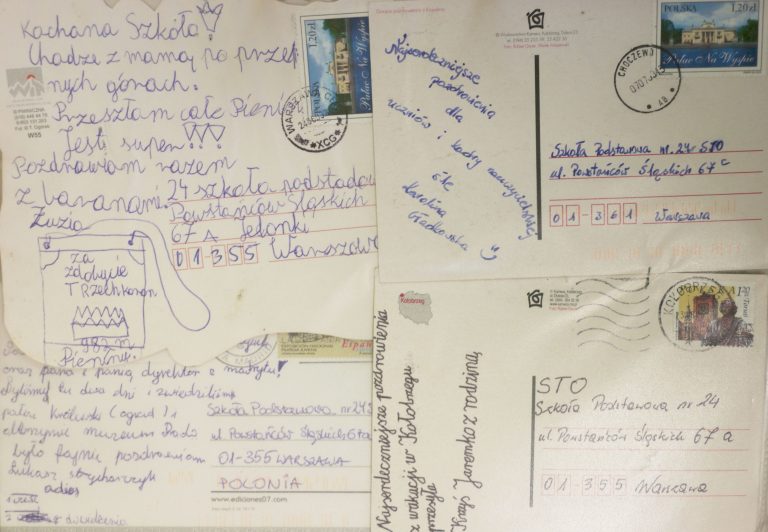 Kochana Szkoło!
Chodzę z mamą po przep
nych górach.
Przeszłam całe Pieni
Jest super!!!
Pozdrawiam razem
z baranami.
Zuzia
za
zdobycie
Trzech koron
982 m
Pieniny
24 szkoła podstado
Powstańców Śląskich
67 A Jelonki
01-355 Warszowa
W55
1,20zł
POLSKA
Pałac Na Wyspie
WARSZAWA
Najserdeczniejsze
pozdrowienia
dla
uczniów i kadry nauczycielskiej
śle
Karolina
POLSKA
1,20zł
Pałac Na Wyspie
CHOCZEWO
Szkoła Podstawowa nr. 24 STO
ul. Powstańców Śląskich 67 c
01-361 Warszawa
Kołobrzeg
Najserdeczniejsze pozdrowienia
z wakacji w Kołobrzegu
przesyła
Krzyś Jaremko z rodziną
STO
Szkoła Podstawowa nr 24
ul. Powstańców Śląskich 67 a
01-355 Warszawa
oraz pana i panią dyrektor z madrytu!
Byliśmy tu dwa dni i zwiedziliśmy
pałac Królewski (ogród) i
muzeum Prado
było fajnie pozdrawiam
Łukasz
adios
Szkoła Podstawowa nr 24
ul. Powstańców Śląskich 67a
01-355 WARSZAWA
POLONIA
www.ediciones07.com